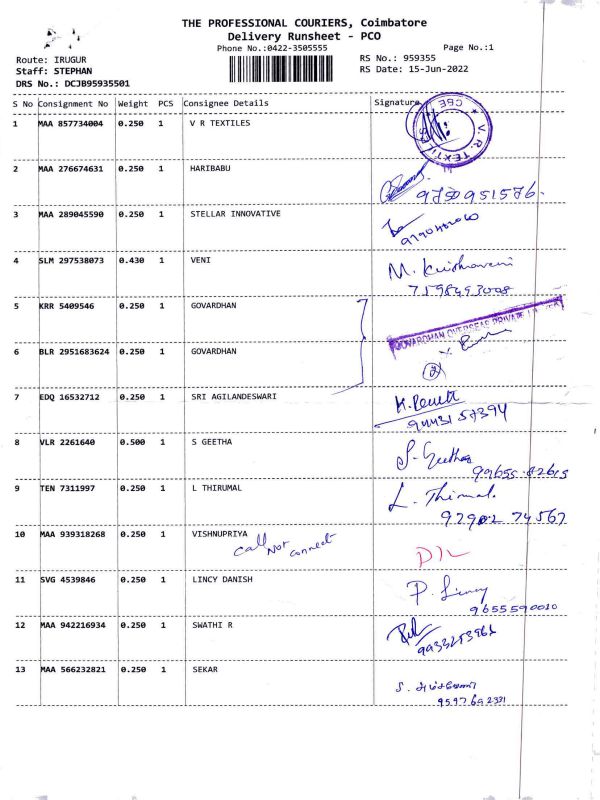 THE PROFESSIONAL COURIERS, Coimbatore
Delivery Runsheet - PCO
Phone No.:0422-3505555
Page No.:1
Route: IRUGUR
RS No.: 959355
Staff: STEPHAN
RS Date: 15-Jun-2022
DRS No.: DCJB95935501
S No Consignment No Weight PCS Consignee Details Signature
1 MAA 857734004 0.250 1 V R TEXTILES
CBE
V.R. TEXTIL
2 MAA 276674631 0.250 1 HARIBABU
9750951576.
3 MAA 289045590 0.250 1 STELLAR INNOVATIVE
4 SLM 297538073 0.430 1 VENI
M. Krishnaveni
7598493008
5 KRR 5409546 0.250 1 GOVARDHAN
GOVARDHAN OVERSEAS PRIVATE LIMITED
6 BLR 2951683624 0.250 1 GOVARDHAN
2
7 EDQ 16532712 0.250 1 SRI AGILANDESWARI
94431 57394
8 VLR 2261640 0.500 1 S GEETHA
S. Geetha
99655 82615
9 TEN 7311997 0.250 1 L THIRUMAL
L. Thirumal.
92902 74567
10 MAA 939318268 0.250 1 VISHNUPRIYA
call Not connect
D/L
11 SVG 4539846 0.250 1 LINCY DANISH
P. Lincy
9655590010
12 MAA 942216934 0.250 1 SWATHI R
9933253961
13 MAA 566232821 0.250 1 SEKAR
9597692331